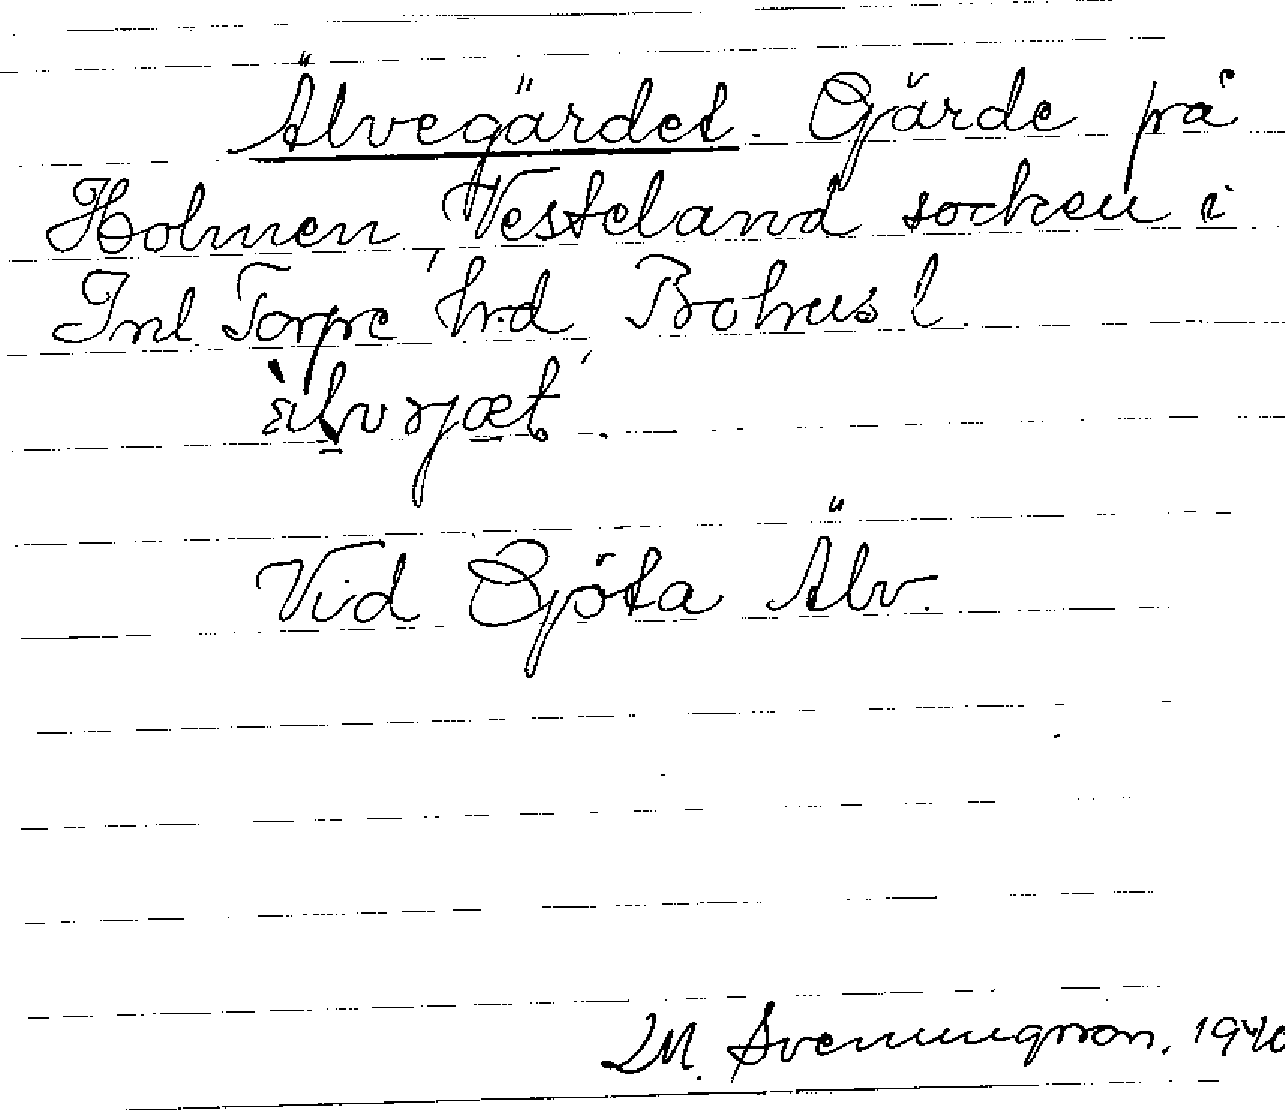 Älvegärdet. Gärde på
Holmen, Vesteland socken i
Inl Torpe hrd Bohus l
Vid Göta Älv.
M. Svenningsson. 1940